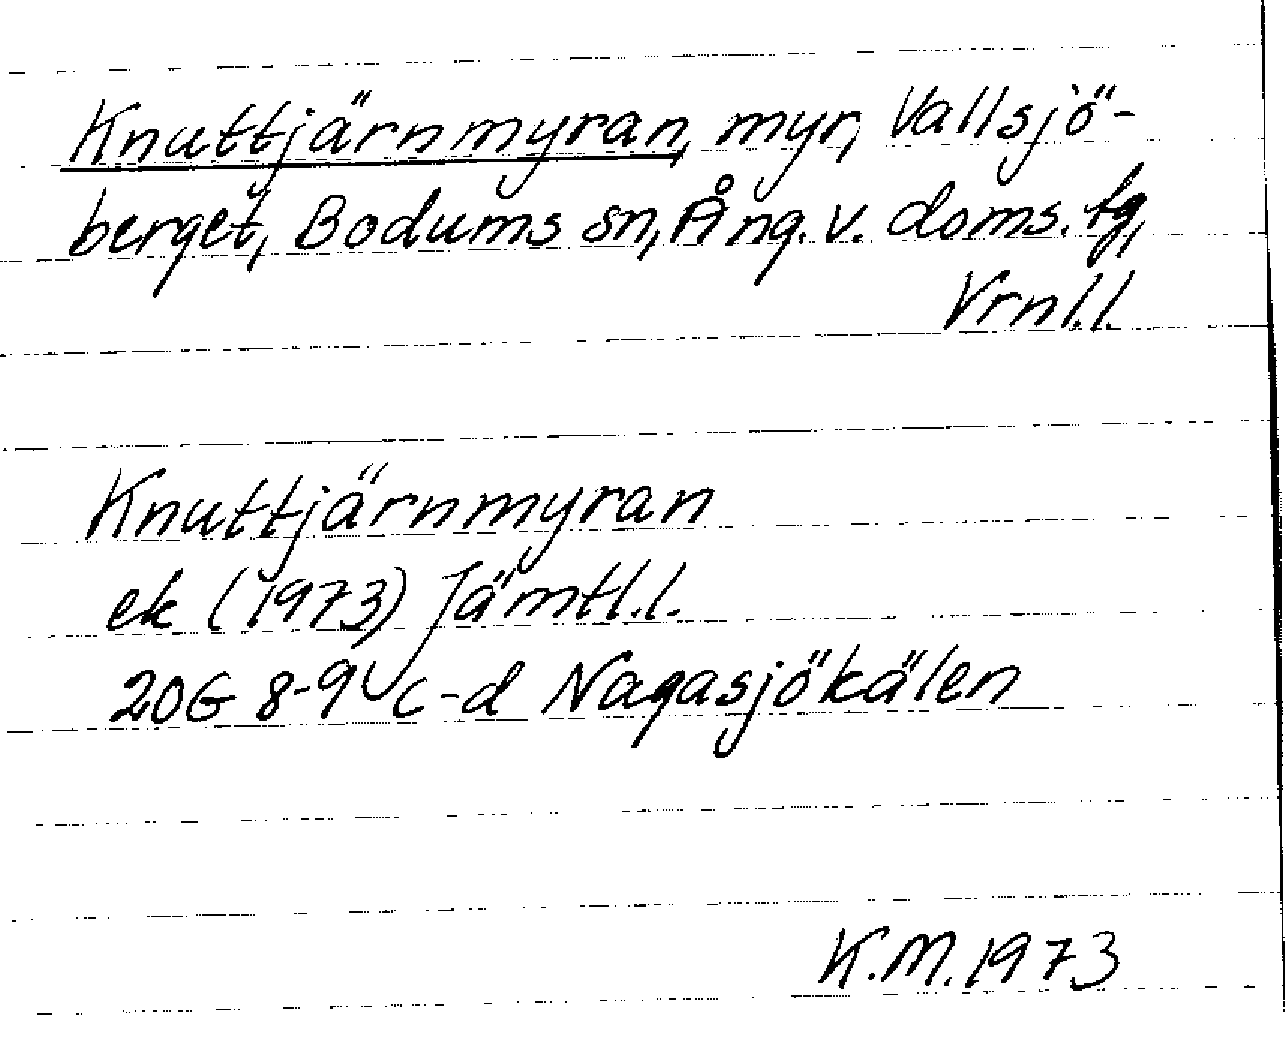 Knuttjärnmyran, myr, Vallsjö-
berget, Bodums sn, Ång. v. doms. tg,
Vrnl.l.
Knuttjärnmyran
ek (1973) Jämtl.l.
20G 8-9 c-d Nagasjökälen
K.M. 1973